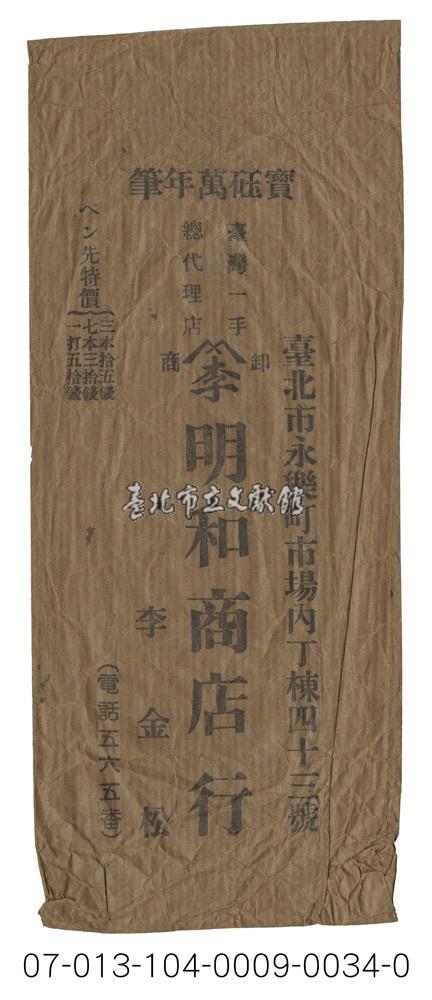 寶砡萬年筆
臺灣一手
總代理店
ペン先特價
三本拾五錢
七本三拾錢
一打五拾錢
臺北市永樂町市場內丁棟四十三號
卸商
李
明和商店行
李金松
(電話五六五番)
臺北市立文獻館
07-013-104-0009-0034-0